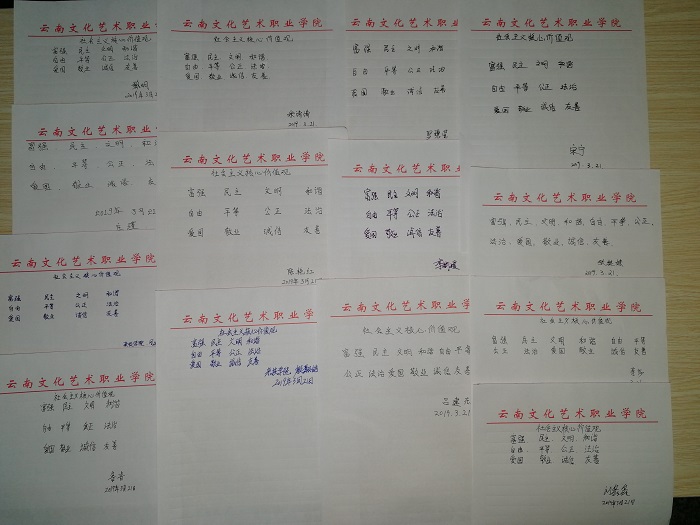 云南文化艺术职
社会主义核心价值观
富强 民主 文明 和谐
自由 平等 公正 法治
爱国 敬业 诚信 友善
云南文化艺术职业学院
社会主义核心价值观
富强 民主 文明 和谐
自由 平等 公正 法治
爱国 敬业 诚信 友善
2019.3.21.
云南文化艺术职业
富强 民主 文明 和谐
自由 平等 公正 法治
爱国 敬业 诚信 友善
云南文化艺术职业学院
社会主义核心价值观
富强 民主 文明 和谐
自由 平等 公正 法治
爱国 敬业 诚信 友善
宋宁
2019.3.21.
云南文化艺术职业
富强 民主 文明 和
自由 平等 公正 法
爱国 敬业 诚信 友
云南文化艺术职业学
社会主义核心价值观
富强 民主 文明 和谐
自由 平等 公正 法治
爱国 敬业 诚信 友善
云南文化艺术职业学
富强 民主 文明 和谐
自由 平等 公正 法治
爱国 敬业 诚信 友善
云南文化艺术职业学院
富强、民主、文明、和谐、自由、平等、公正、
法治、爱国、敬业、诚信、友善.
2019.3.21.
云南文化艺术职业
社会主义核心价值观
富强 民主 文明 和谐
自由 平等 公正 法治
爱国 敬业 诚信 友善
云南文化艺术职业学
社会主义核心价值观
富强 民主 文明 和谐
自由 平等 公正 法治
爱国 敬业 诚信 友善
2019年3月21日
云南文化艺术职业学
社会主义核心价值观
富强 民主 文明 和谐 自由 平等
公正 法治 爱国 敬业 诚信 友善
吕建
2019.3.21
云南文化艺术职业学院
社会主义核心价值观
富强 民主 文明 和谐 自由 平等
公正 法治 爱国 敬业 诚信 友善
云南文化艺术职业学
社会主义核心价值观
富强 民主 文明 和谐
自由 平等 公正 法治
爱国 敬业 诚信 友善
2019年3月21日
云南文化艺术职业学院
社会主义核心价值观
富强、民主、文明、和谐
自由、平等、公正、法治
爱国 敬业 诚信 友善
2019年3月21日